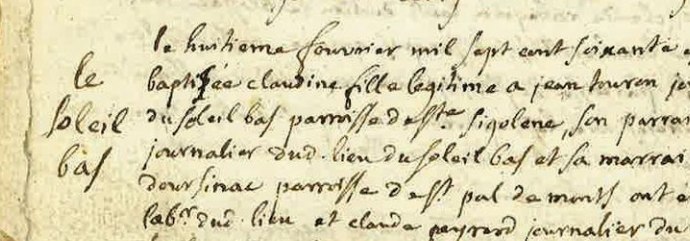 le huitieme fevrier mil sept cent soixante
le
baptisée claudine fille legitime a jean touron
soleil
du soleil bas parroisse de ste sigolene, son parrai
bas
journalier dud. lieu du soleil bas et sa marrai
doursinac parroisse de st pal de monts ont é
labr. dud. lieu et claude peyrard journalier du